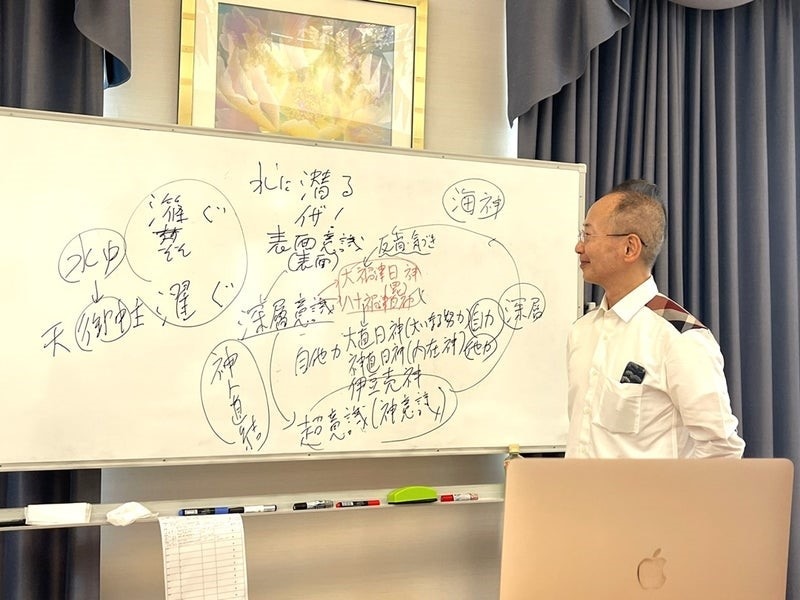 水に潜る
イザノ
表面意識
(表面)
反省・気づき
海神
ぐ
水中
濯ぐ
天
大禍津日神
八十禍津日神
深層意識
深層
大直日神(大いなる努力)自力
自他力
神直日神(内在神)他力
伊豆売神
神人直結
超意識(神意識)